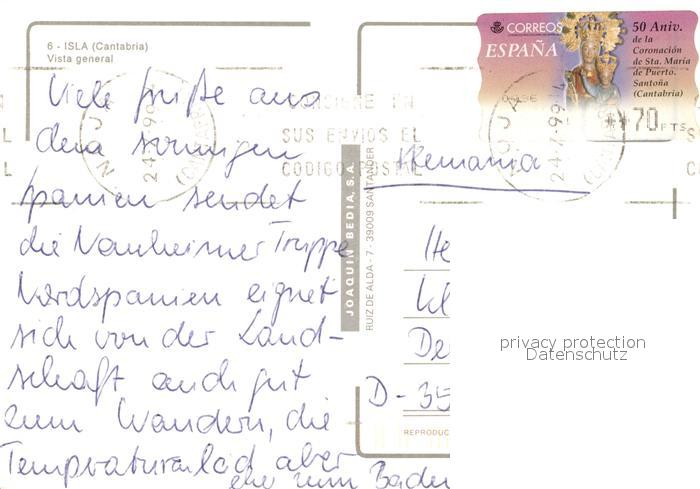 6 - ISLA (Cantabria)
Vista general
CORREOS
ESPAÑA
50 Aniv.
de la
Coronación
de Sta. María
de Puerto.
Santoña
(Cantabria)
**70 PTS
NOJA
24-7-99
(CANTABRIA)
CONSIGNE EN
SUS ENVIOS EL
CODIGO POSTAL
NOJA
24-7-99
Viele Grüße aus
dem sonnigen
Spanien sendet
die Nauheimer Truppe
Nordspanien eignet
sich von der Land-
schaft auch gut
zum Wandern, die
Temperatur lädt aber
eher zum Baden
JOAQUIN BEDIA, S.A.
RUIZ DE ALDA - 7 - 39009 SANTANDER
Alemania
He
Kl
De
D - 35
REPRODUC
privacy protection
Datenschutz